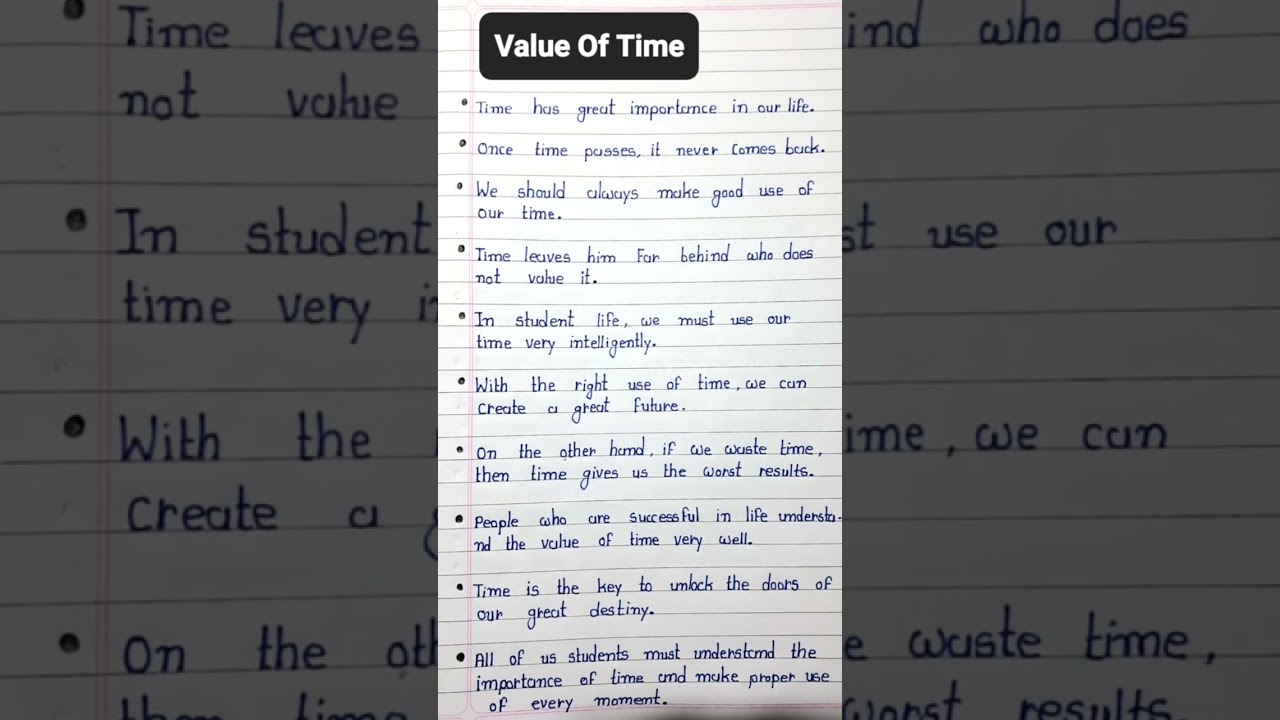 Value Of Time
• Time has great importance in our life.
• Once time passes, it never comes back.
• We should always make good use of
our time.
• Time leaves him far behind who does
not value it.
• In student life, we must use our
time very intelligently.
• With the right use of time, we can
create a great future.
• On the other hand, if we waste time,
then time gives us the worst results.
• People who are successful in life understa-
nd the value of time very well.
• Time is the key to unlock the doors of
our great destiny.
• All of us students must understand the
importance of time and make proper use
of every moment.